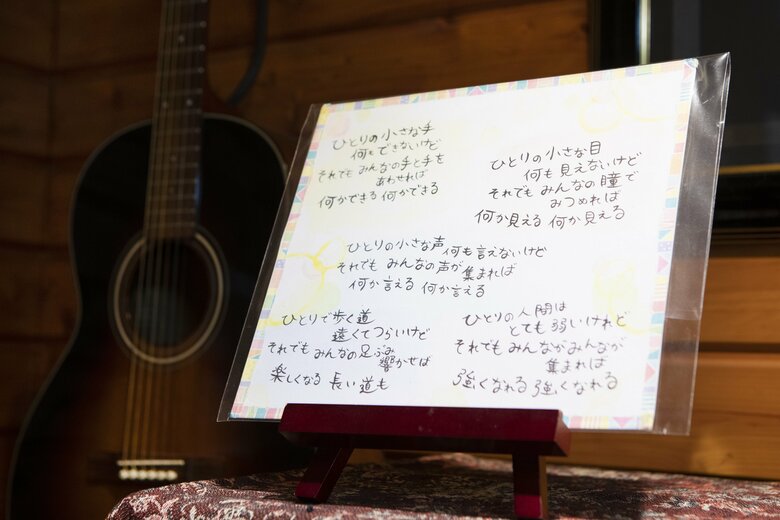 ひとりの小さな手
何もできないけど
それでもみんなの手と手を
あわせれば
何かできる 何かできる
ひとりの小さな目
何も見えないけど
それでも みんなの瞳で
みつめれば
何か見える 何か見える
ひとりの小さな声 何も言えないけど
それでも みんなの声が 集まれば
何か言える 何か言える
ひとりで歩く道
遠くてつらいけど
それでもみんなの足ぶみ
響かせば
楽しくなる 長い道も
ひとりの人間は
とても弱いけれど
それでもみんながみんなが
集まれば
強くなれる 強くなれる